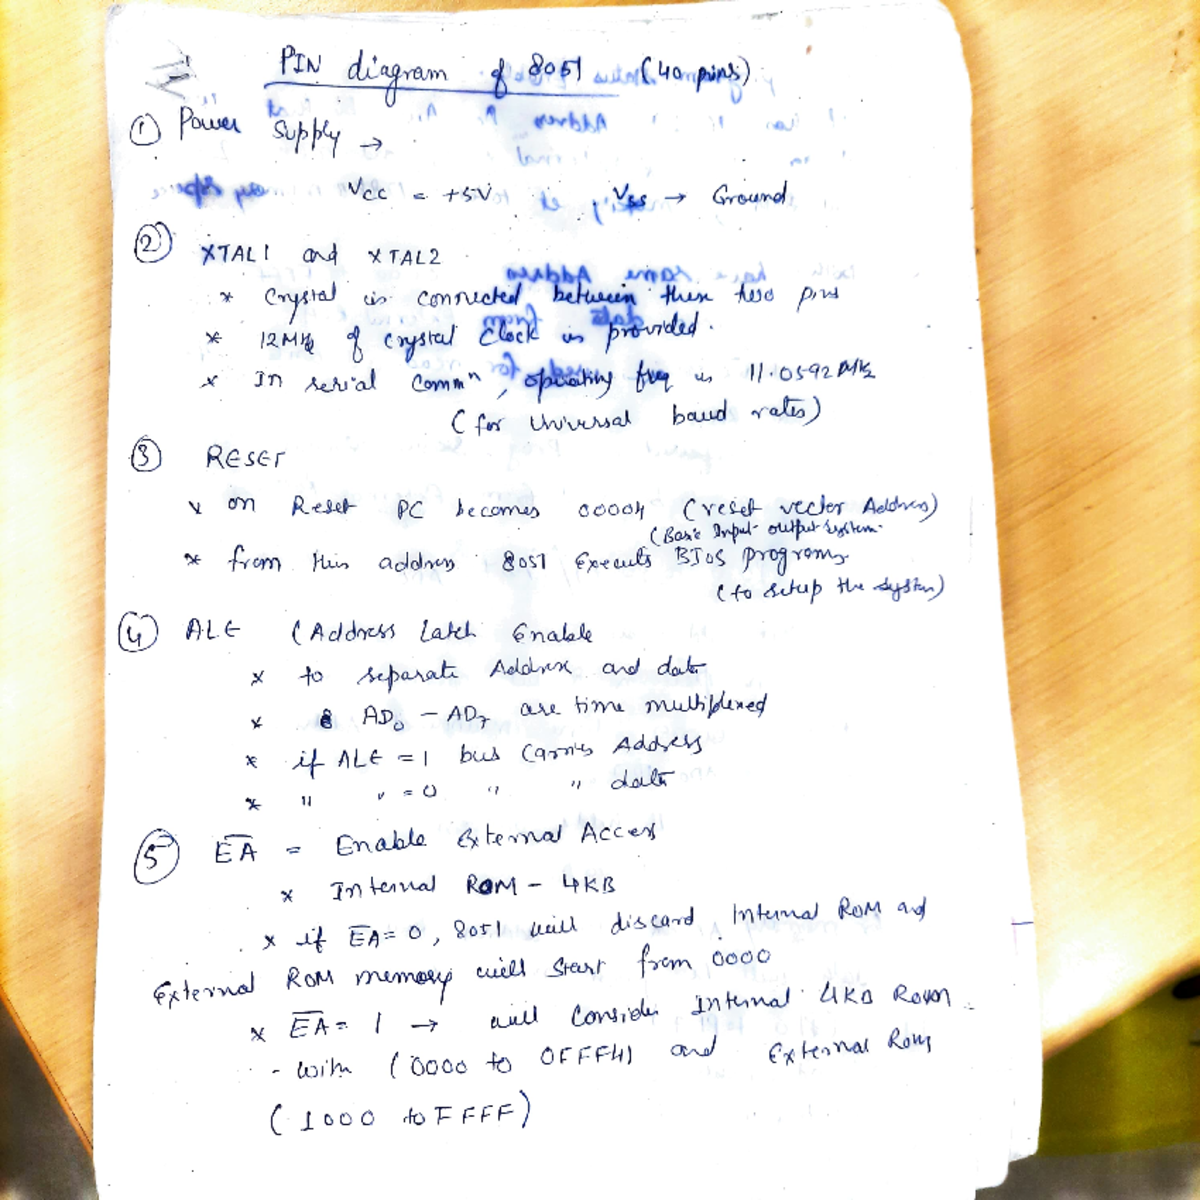 PIN diagram of 8051 (40 pins)
① Power Supply →
Vcc = +5V Vss → Ground
② XTAL1 and XTAL2
* Crystal is connected between these two pins
* 12MHz of crystal clock is provided.
* In serial commⁿ, operating freq is 11.0592 MHz
(for Universal baud rates)
③ RESET
* on Reset PC becomes 0000H (reset vector Address)
(Basic Input output system
* from this address 8051 Executs BIOS programs
(to setup the system)
④ ALE (Address Latch Enable
* to separate Address and data
* AD₀ - AD₇ are time multiplexed
* if ALE = 1 bus Carries Address
* " " = 0 " " data
⑤ E̅A̅ = Enable External Access
* Internal ROM - 4KB
* if E̅A̅ = 0, 8051 will discard Internal ROM and
External ROM memory will start from 0000
* E̅A̅ = 1 → will Consider Internal 4KB Rom
- with (0000 to 0FFFH) and External Rom
(1000 to FFFF)